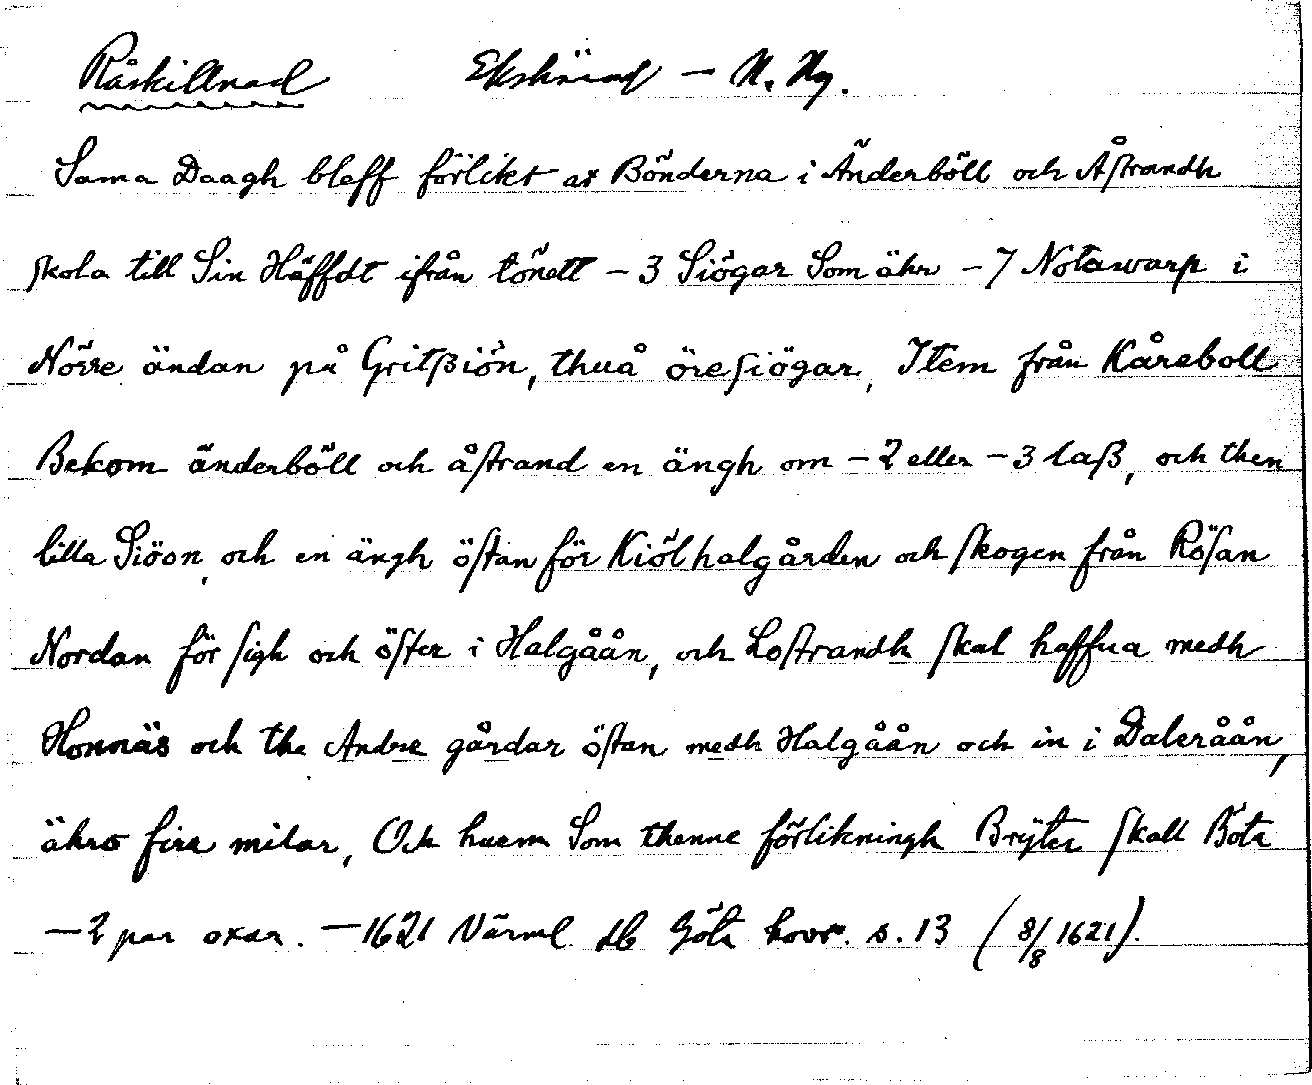 Råskillnad Ekshärad – N. Ny.
Sama Daagh bleff förlikt at Bönderna i Änderböll och Åstrandh
skola till Sin Häffdt ifrån tönett – 3 Siögar Som ähr – 7 Notawarp i
Nörre ändan på Gritßiön, thuå öresiögar, Item från Kåreboll
Bekom änderböll och åstrand en ängh om – 2 eller – 3 laß, och then
lilla Siöon, och en ängh östan för Kiölhalgården och skogen från Rösan
Nordan för sigh och öster i Halgåån, och Lostrandh skal haffua medh
Honnäs och the Andre gårdar östan medh Halgåån och in i Daleråån,
ähro fire milar, Och huem Som thenne förlikningh Bryter skall Böta
– 2 par oxar. – 1621 Värml. db Göta hovr. s. 13 (8/8 1621).